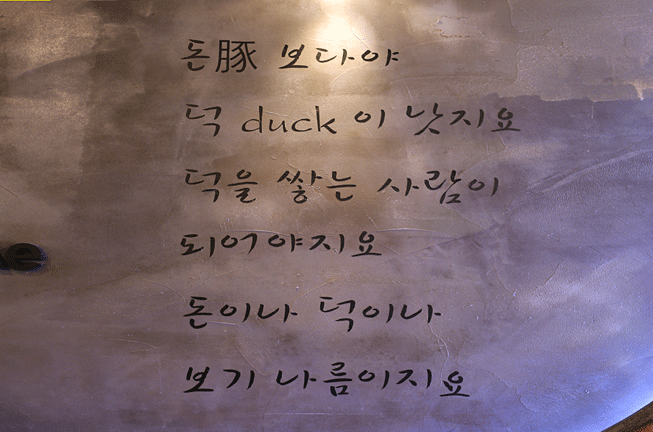 돈豚 보다야
덕 duck 이 낫지요
덕을 쌓는 사람이
되어야지요
돈이나 덕이나
보기 나름이지요
e